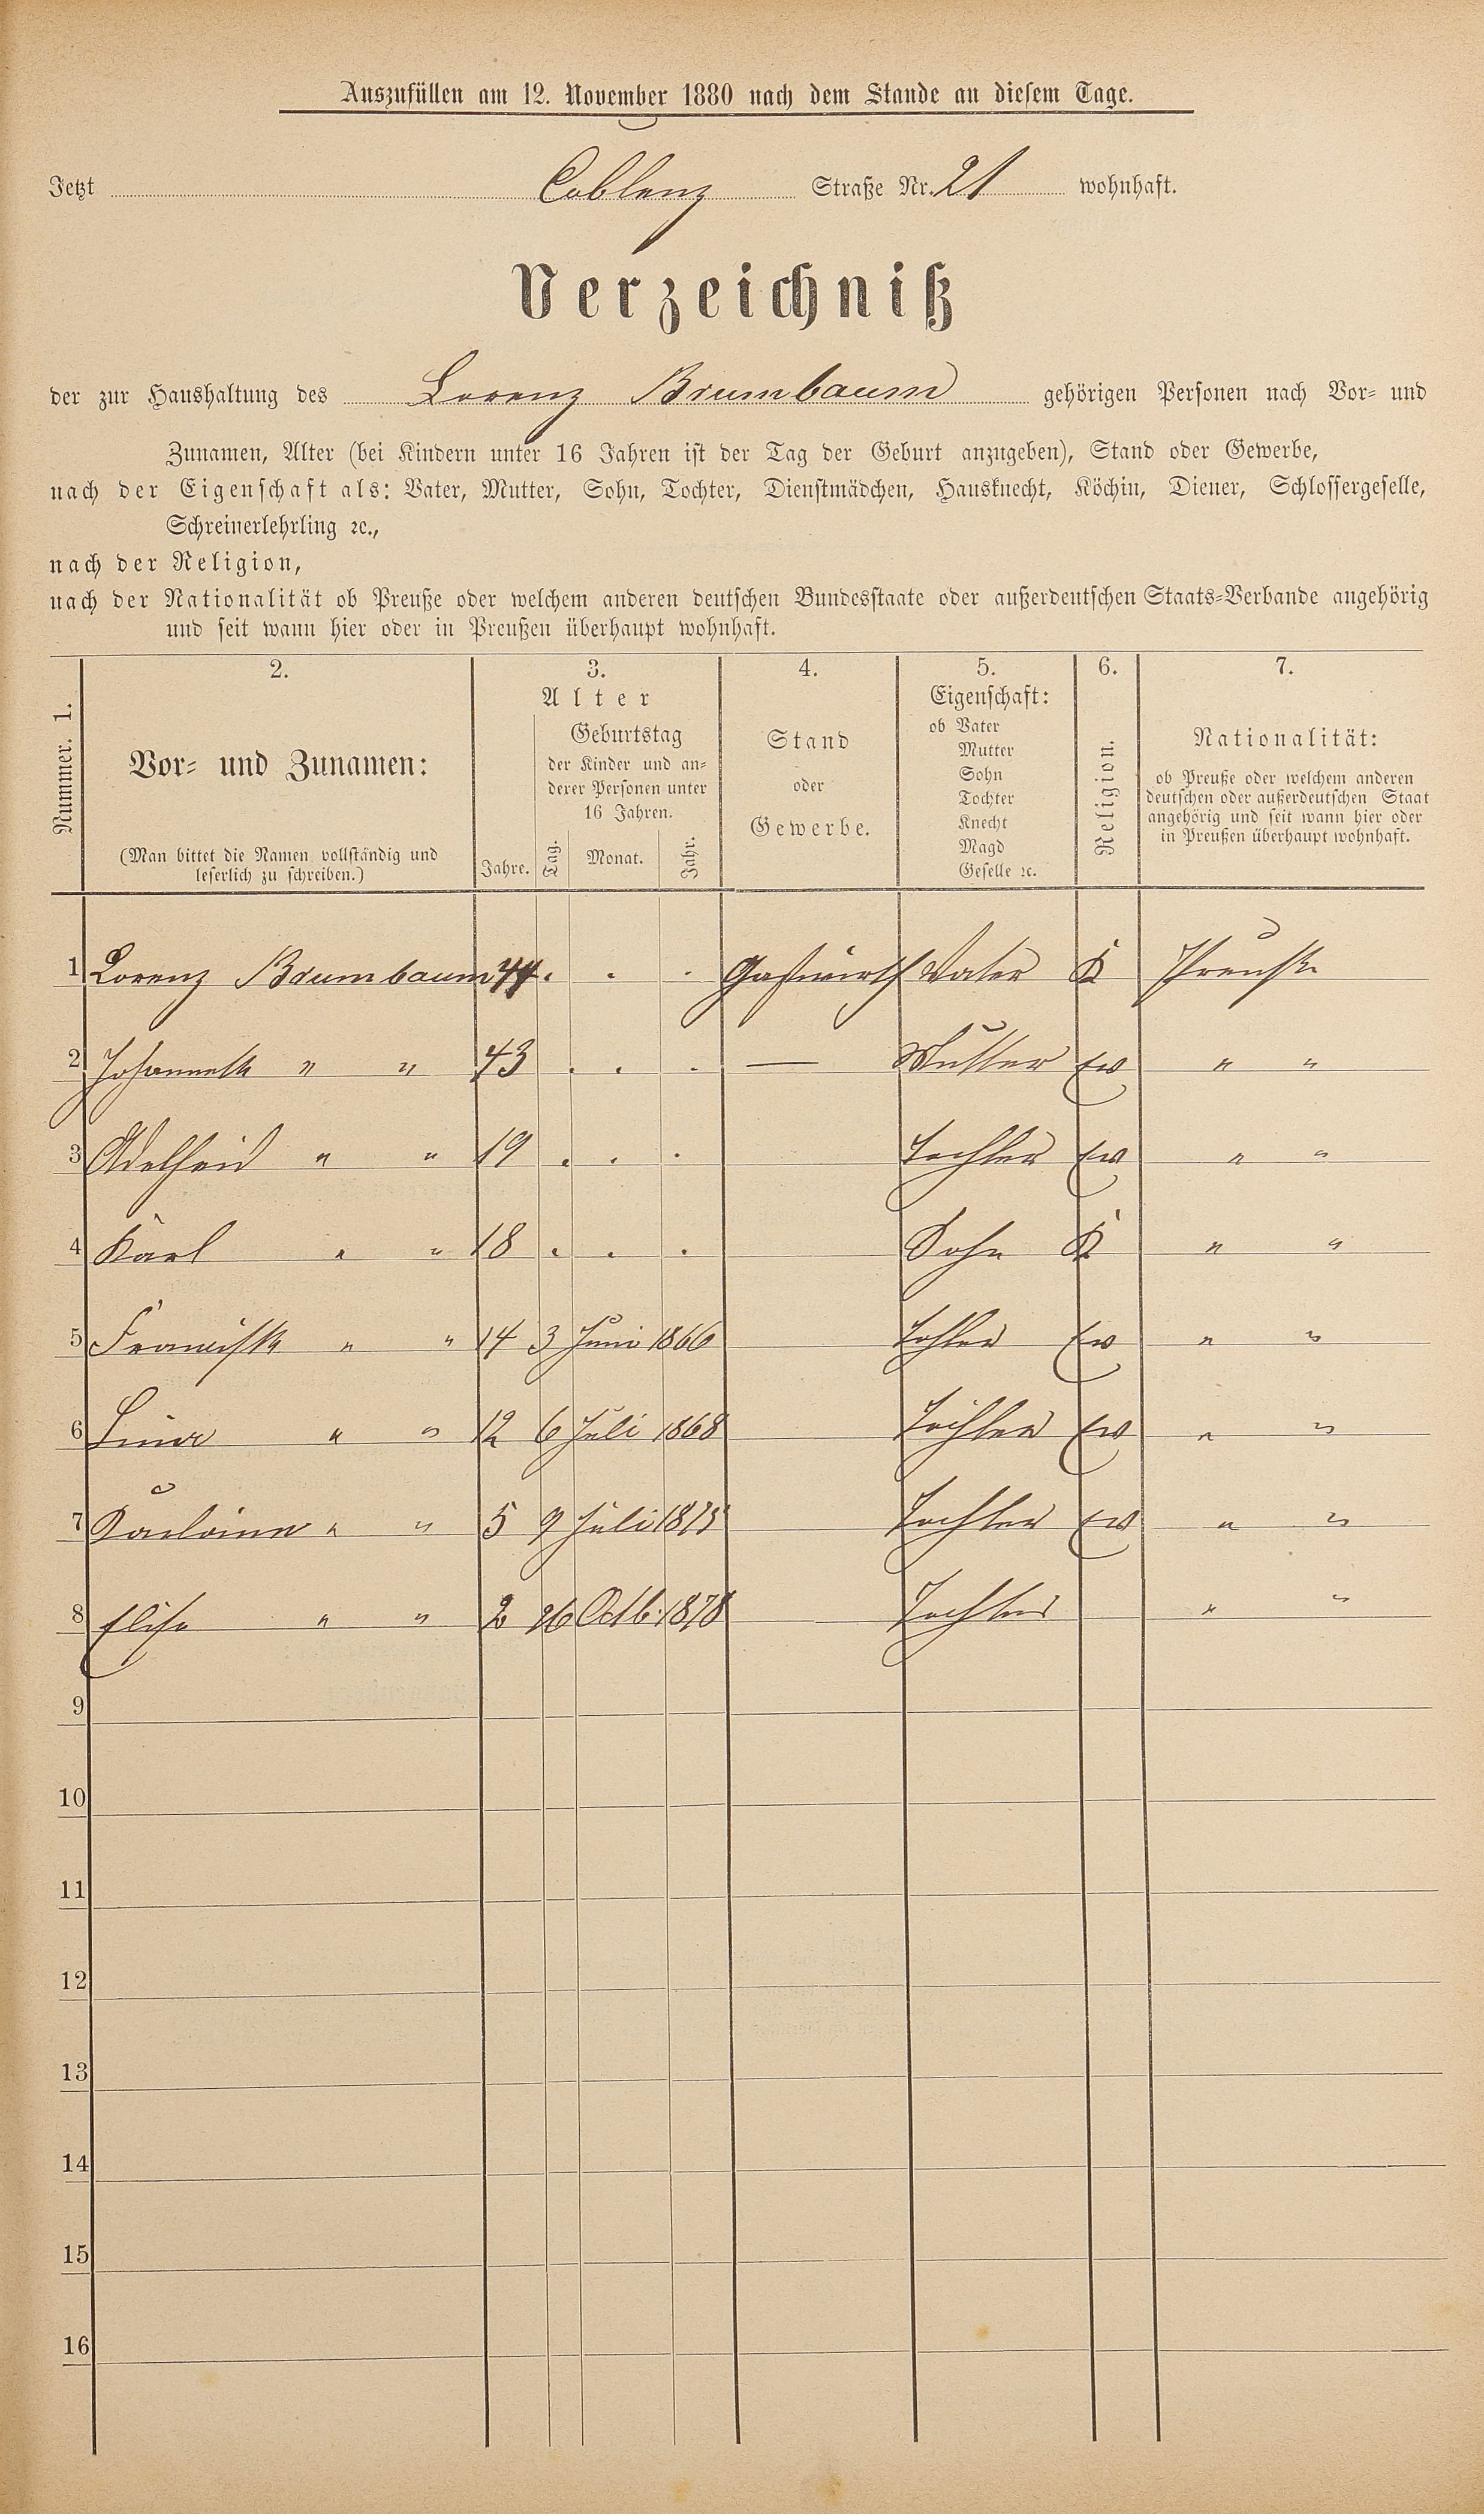 Auszufüllen am 12. November 1880 nach dem Stande an diesem Tage.
Jetzt Coblenz Straße Nr. 21 wohnhaft.
Verzeichniß
der zur Haushaltung des Lorenz Brumbaum gehörigen Personen nach Vor- und
Zunamen, Alter (bei Kindern unter 16 Jahren ist der Tag der Geburt anzugeben), Stand oder Gewerbe,
nach der Eigenschaft als: Vater, Mutter, Sohn, Tochter, Dienstmädchen, Hausknecht, Köchin, Diener, Schlossergeselle,
Schreinerlehrling ꝛc.,
nach der Religion,
nach der Nationalität ob Preuße oder welchem anderen deutschen Bundesstaate oder außerdeutschen Staats-Verbande angehörig
und seit wann hier oder in Preußen überhaupt wohnhaft.
Nummer. 1.
2.
Vor- und Zunamen:
(Man bittet die Namen vollständig und
leserlich zu schreiben.)
3.
Alter
Jahre.
Geburtstag
der Kinder und an-
derer Personen unter
16 Jahren.
Tag. Monat. Jahr.
4.
Stand
oder
Gewerbe.
5.
Eigenschaft:
ob Vater
Mutter
Sohn
Tochter
Knecht
Magd
Geselle ꝛc.
6.
Religion.
7.
Nationalität:
ob Preuße oder welchem anderen
deutschen oder außerdeutschen Staat
angehörig und seit wann hier oder
in Preußen überhaupt wohnhaft.
1 Lorenz Brumbaum 44 . . . Gastwirth Vater K Preuße
2 Johannette " " 43 . . . — Mutter Ev " "
3 Adelheid " " 19 . . . Tochter Ev " "
4 Karl " " 18 . . . Sohn K " "
5 " " 14 3 Juni 1866 Tochter Ev " "
6 " " 12 6 Juli 1868 Tochter Ev " "
7 " " 5 9 Juli 1875 Tochter Ev " "
8 Elise " " 2 26 Octb. 1878 Tochter " "
9
10
11
12
13
14
15
16